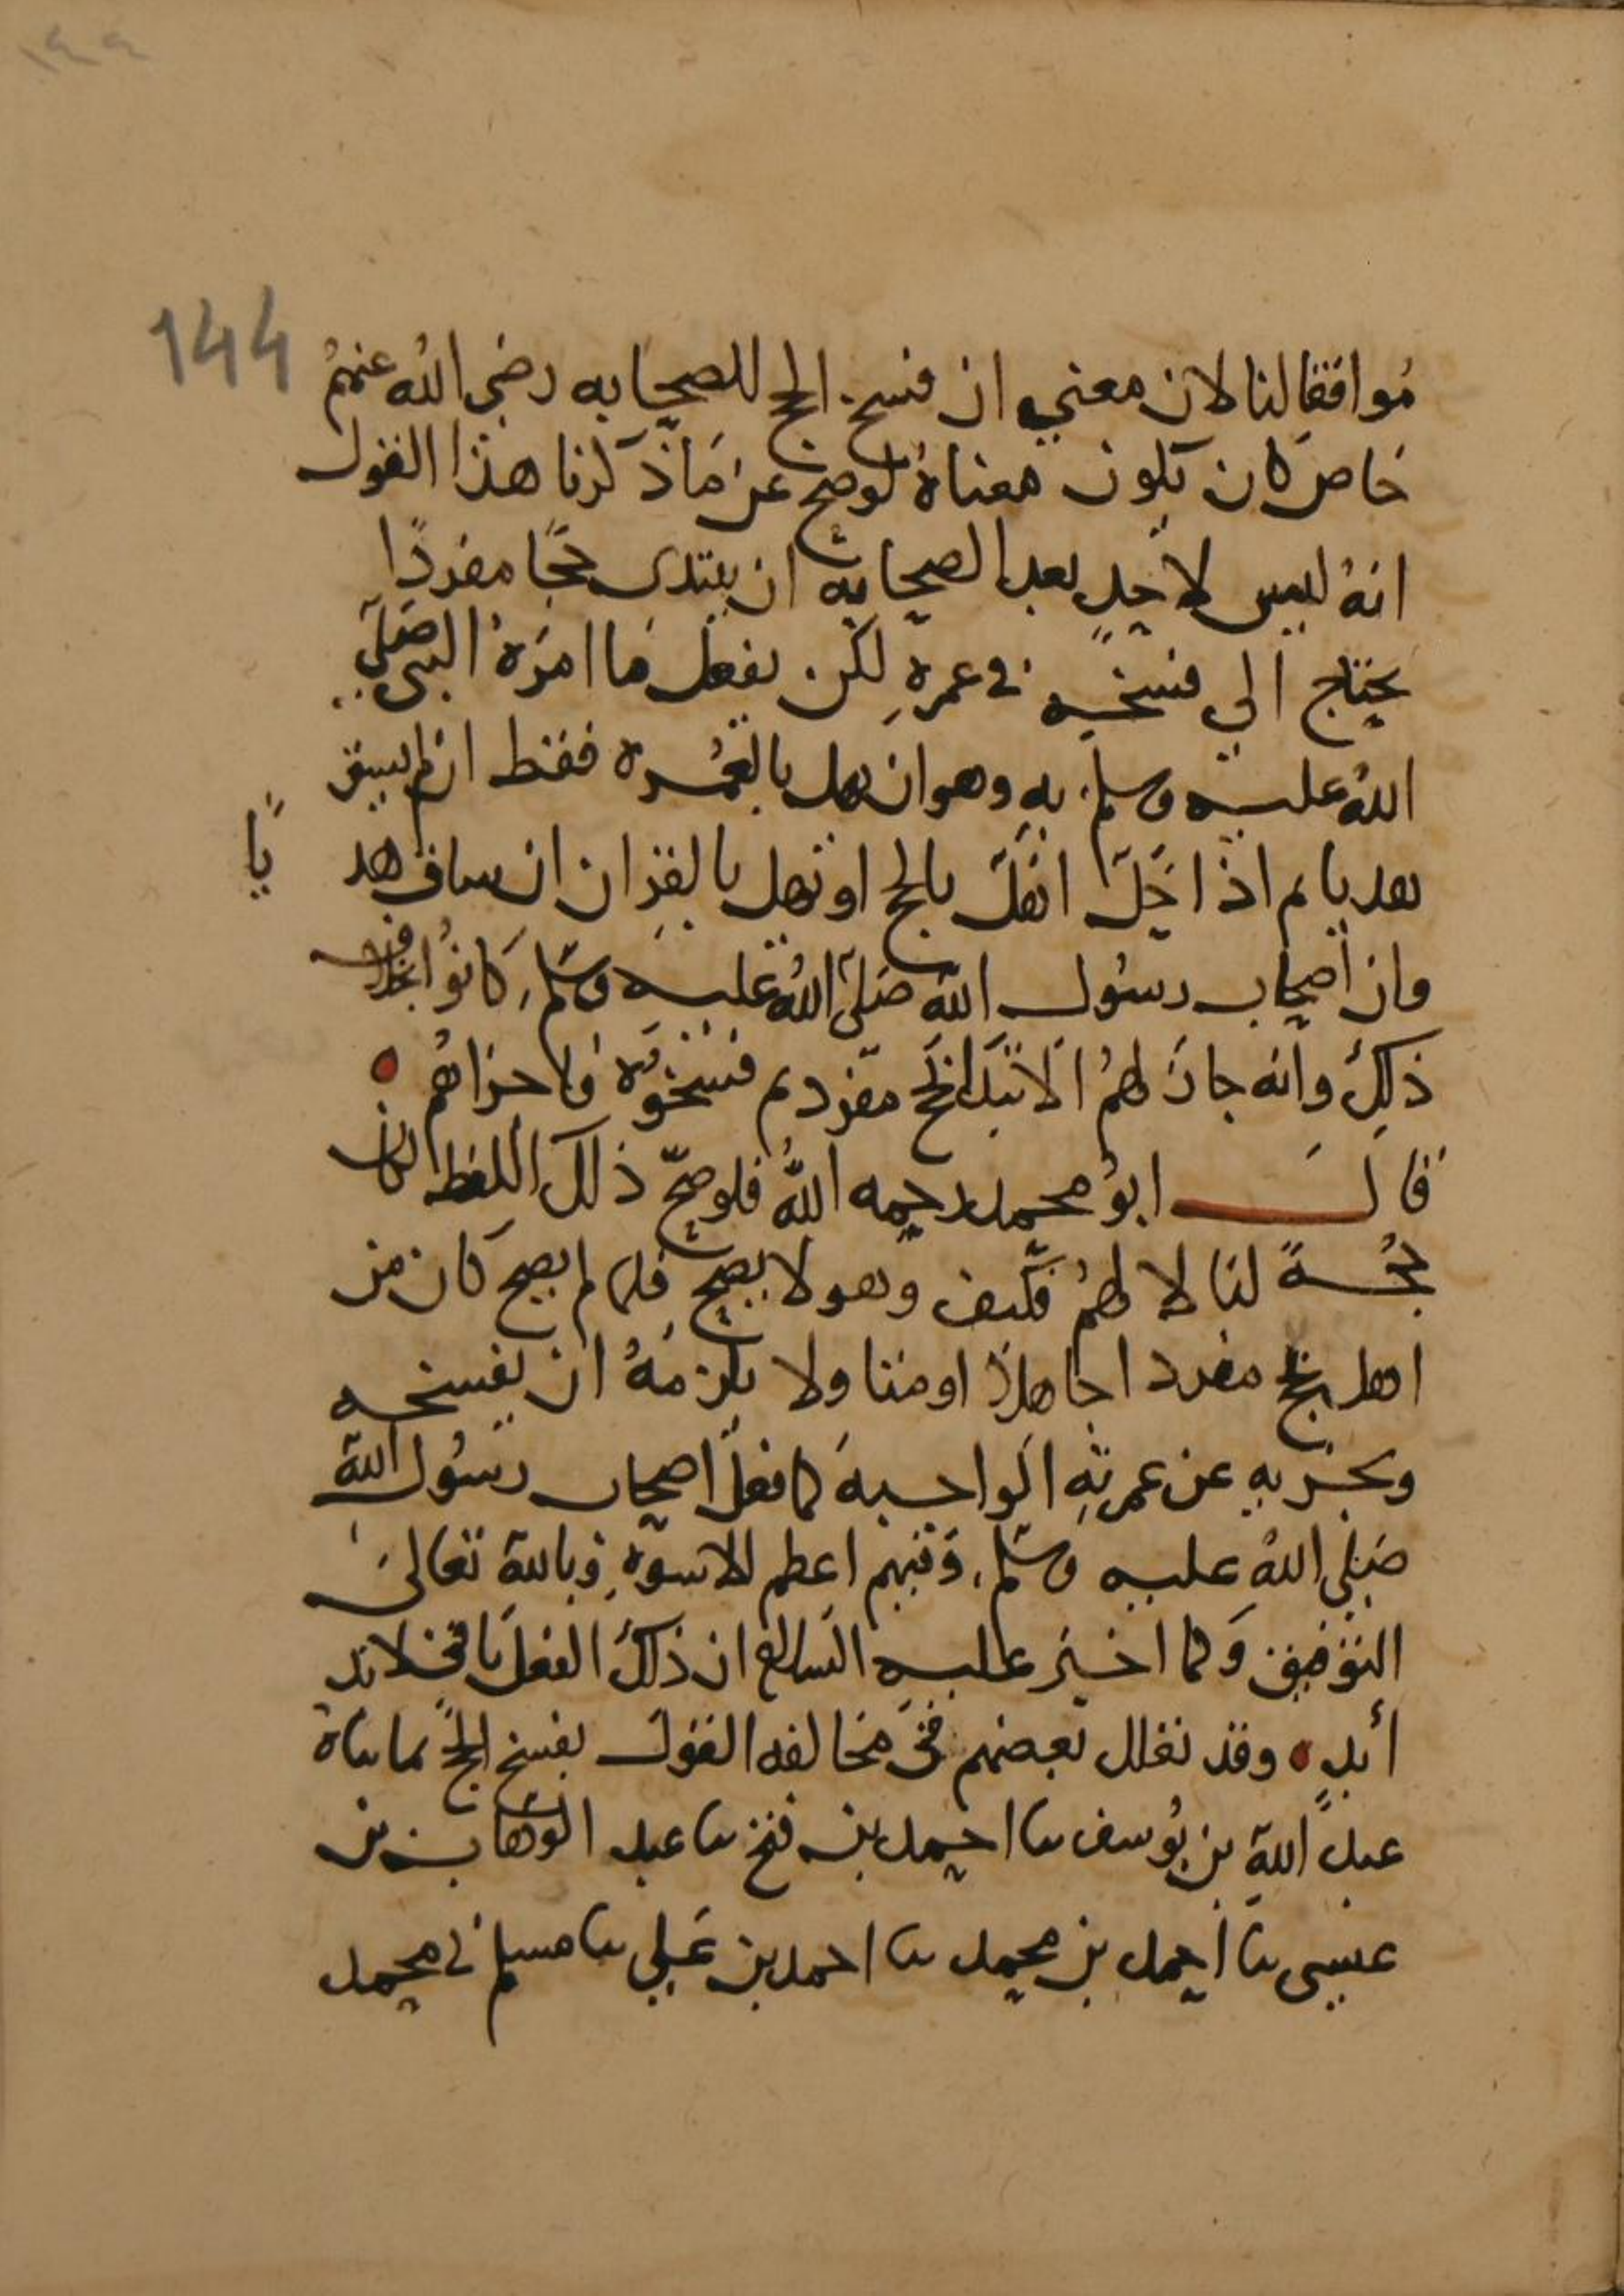 ١٤٤
144
مُوافقا لنا لان معنى ان فسخ الحج للصحابه رضي الله عنهُم
خاص كان يكون معناهُ لو صح عن مَا ذكرنا هذا القول
انهُ ليس لاحدٍ بعد الصحابه ان يبتدى حجًا مفردًا
يحتاج الي فسخه في عمرهِ لكن يفعل مَا امرَهُ النبي صَلي
اللهُ عليه وسلم به وهو ان يهل بالعُمره فقط ان لم يسق
هديا ثم اذا احَل اهَل بالحج او يهل بالقِران ان ساق هد
يًا
وان اصحاب رسُول الله صَلى اللهُ عليه وسَلم كانوُا بخلاف
ذلِكَ وانه جازَ لهمُ الابتدا بحج مفرد ثم فسخوُه ولا حزاهُم
قالَ ابوُ محمد رحمه اللهُ فلو صحّ ذلك اللفظ لكان
حُجةً لنا لا لهمُ فكيف وهو لا يصح فلما لم يصح كان من
اهل بحج مفرد اجاهلا اومنا ولا يلزمهُ ان يفسخه
ويجزيه عن عمرتهِ الواجبهَ كما فعل اصحاب رسُول الله
صَلي اللهُ عليه وسَلم، وَفيهم اعظم الاسوه وبالله تعالىَ
التوفيق وَكما اخبَر عليه السلام ان ذلكَ الفعل باق لابد
أبدٍ وقد تعلل بعضهم فى مخالفه القول بفسخ الحج بما ناهُ
عبد الله بن يُوسف نا احمد بن فتح نا عبد الوَهاب بن
عيسى نا احمد بن محمد نا احمد بن عَلي نا مسلم ني محمد